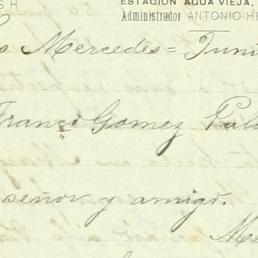 ESTACION AGUA VIEJA,
Administrador ANTONIO
Mercedes = Juni
Franco Gomez Pal
señor y amigo.